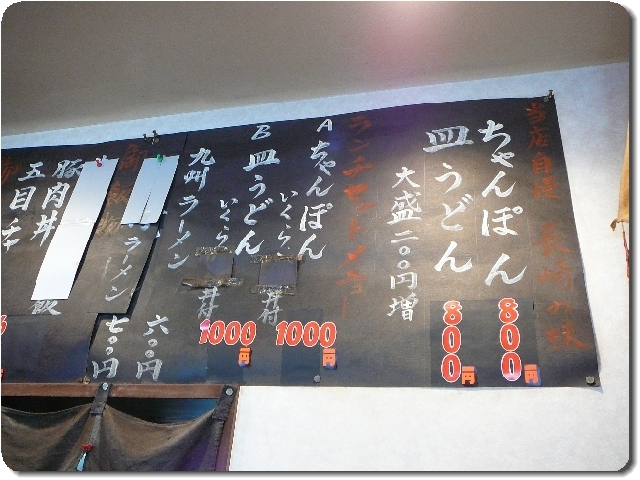 当店自慢 長崎の味
ちゃんぽん 800円
皿うどん 800円
大盛二〇〇円増
ランチセットメニュー
A ちゃんぽん
いくら 丼付 1000円
B 皿うどん
いくら 丼付 1000円
九州ラーメン 六〇〇円
ラーメン 七〇〇円
豚肉丼
五目チ 飯